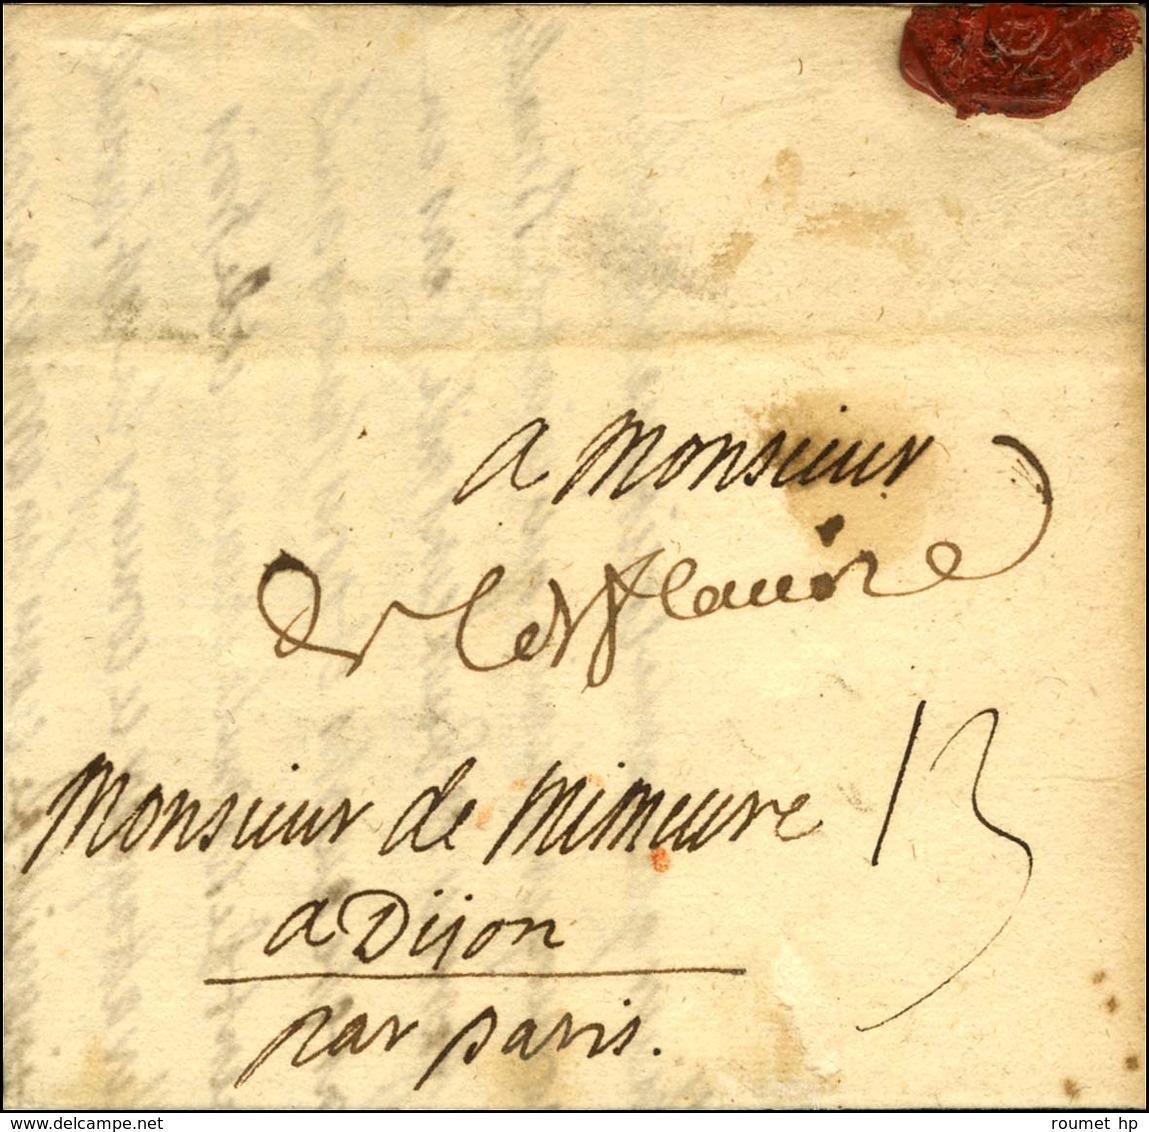 a Monsieur
Monsieur de Mimeure 13
a Dijon
par paris.
www.delcampe.net
roumet hp